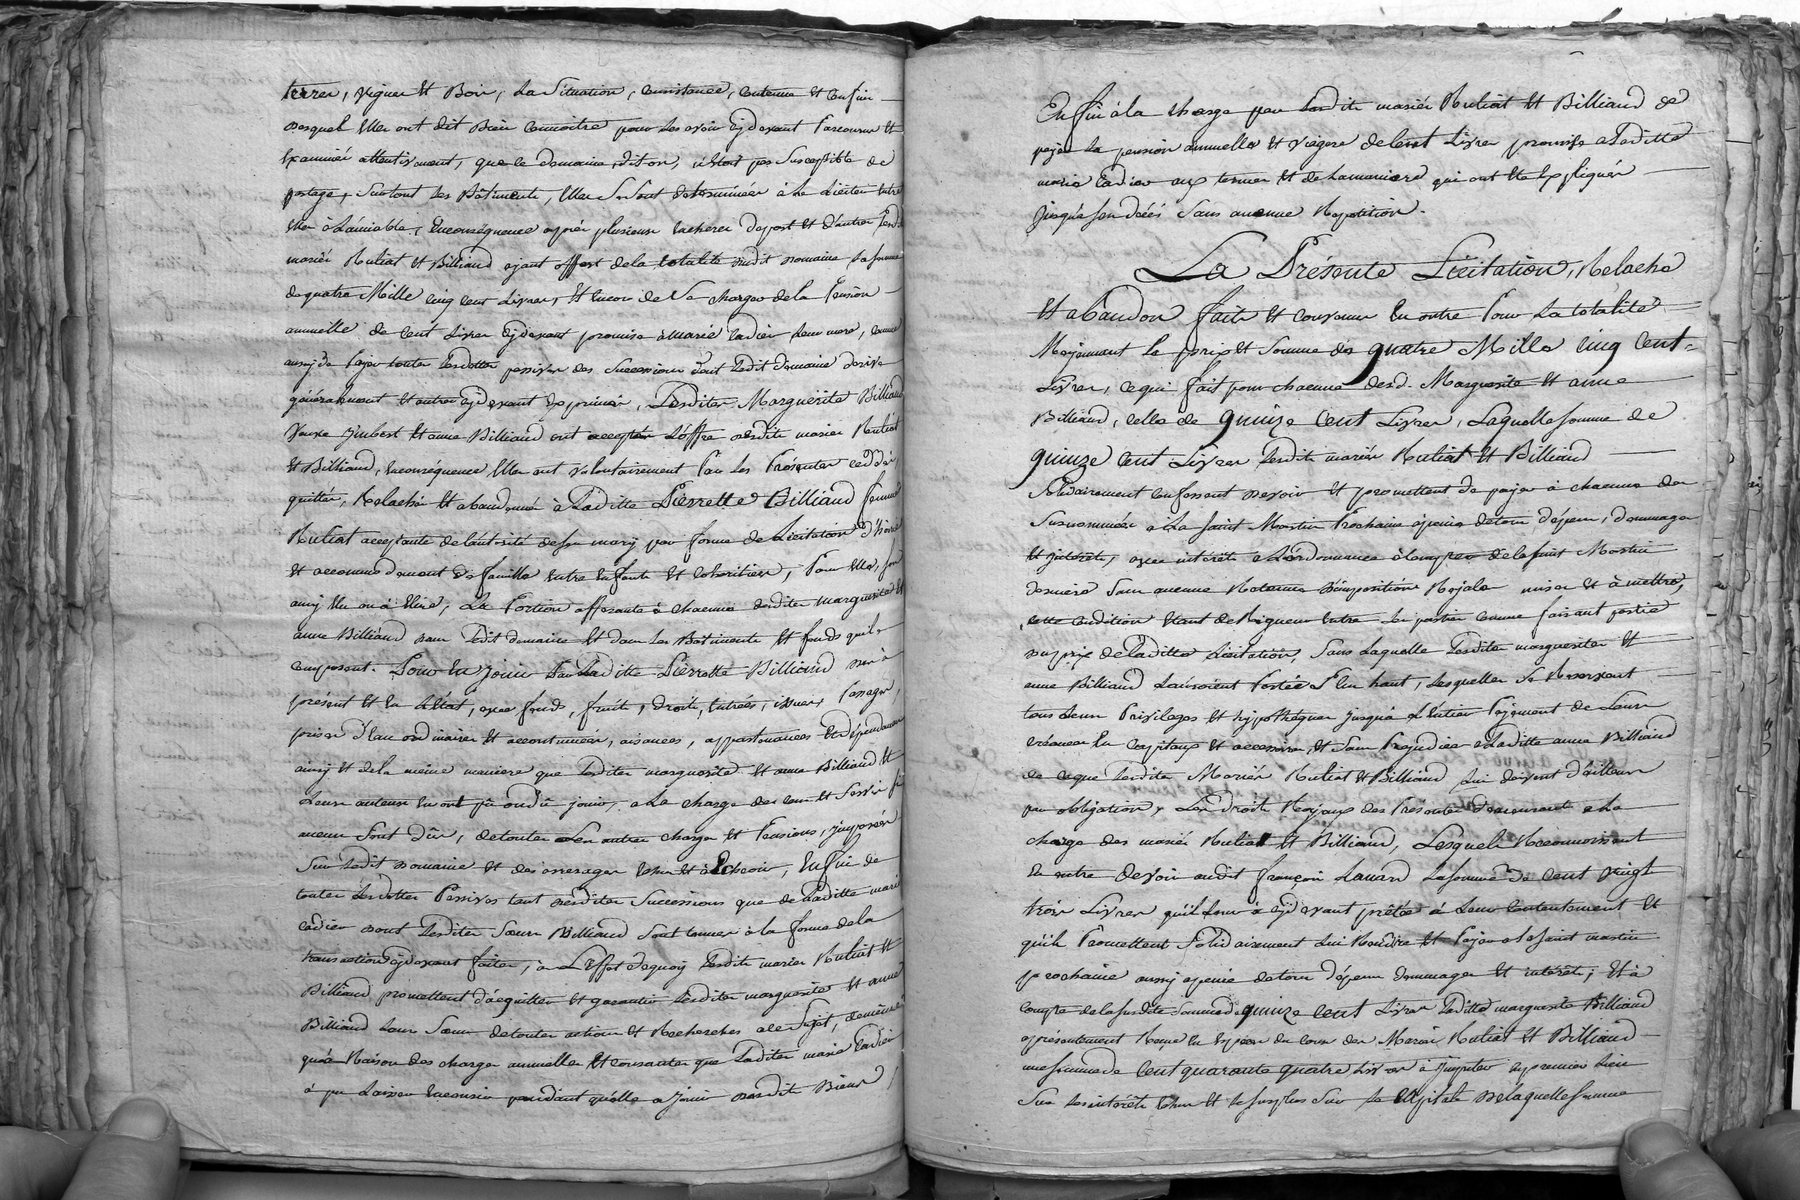 terres, vignes et Bois, La Situation, Consistance, Contenue et Confins
desquel Elles ont dit Bien Connoitre pour Les avoir Cydevant Parcourus et
Examinés attentivement, que ce domaine, dit on, n'étant pas Susceptible de
partage, Surtout Les Bâtiments, Elles Se Sont determinées à Le Liciter entre
Elles à L'amiable, Enconséquence après plusieurs Encheres de part et d'autre Lesd.
mariés Ruliat et Billiand ayant offert dela totalité dudit domaine, La Somme
de quatre Mille Cinq Cent Livres, et Encor de Se charger dela Pension
annuelle de Cent Livres Cydevant promise à marie Cadier Leur mere, Comme
aussy de Payer toutes Les dettes passives des Successions dont Ledit domaine dérive
généralement et autres Cydevant Exprimés, Lesdites Marguerite Billiand
Veuve Jmbert et anne Billiand ont accepté L'offre desdits mariés Ruliat
et Billiand, Enconséquence Elles ont volontairement Par Les Présentes Ceddé,
quitté, Relaché et abandonné à Laditte Pierrette Billiand femme
Ruliat acceptante de L'autorité de Son mary par forme de Licitation d'hoirie
et accommodement de famille Entre Enfants et Cohéritiers, Pour Elle, Son
amy Elu ou à Elire, La Portion afferante à Chacune desdites marguerite et
anne Billiand dans Ledit domaine et dans Les Bâtiments et fonds qui Le
Composent. Pour En Jouir Par Laditte Pierrette Billiand dès à
présent et En L'état, avec fonds, fruits, droits, Entrées, issues, Passages,
prises d'Eau ordinaires et accoutumées, aisances, appartenances et dépendances
ainsy et dela même maniere que Lesdites marguerite et anne Billiand et
Leurs auteurs En ont pû ou dû jouir, a La Charge des Cens et Servis Si
aucuns Sont dûs, de toutes Les autres charges et Pensions, jmposées
Sur Ledit domaine et des arrerages Echus et à Echeoir, Enfin de
toutes Les dettes Passives tant desdites Successions que de Laditte marie
Cadier dont Lesdites Sœurs Billiand Sont tenues à la forme de la
transaction Cydevant faite, à L'Effet dequoy Lesdits mariés Ruliat et
Billiand promettent d'acquitter et garantir Lesdites marguerite et anne
Billiand Leurs Sœurs de toutes actions et Recherches à ce Sujet, de même
qu'à Raison des charges annuelles et Courantes que Laditte marie Cadier
à pu Laisser Encourir pendant qu'elle a joui desdits Biens,
Enfin à la charge par Lesdits mariés Ruliat et Billiand de
payer La pension annuelle et viagere de Cent Livres promise a Laditte
marie Cadier aux termes et de La maniere qui ont Eté Expliqués
Jusqu'a Son décés Sans aucune Répétition.
La Présente Licitation, Relache
et abandon faits et Convenus En outre Pour La totalité
Moyennant Le prix et Somme de quatre Mille Cinq Cent
Livres, ce qui fait pour chacune desd. Marguerite et anne
Billiand, celles de quinze Cent Livres, Laquelle Somme de
quinze Cent Livres Lesdits mariés Ruliat et Billiand
Solidairement Confessent devoir et promettent de payer à chacune des
Susnommées a La Saint Martin Prochaine à peine de tous dépens, dommages
et jnterêts, avec intérêts a L'ordonnance à Compter dela Saint Martin
derniere Sans aucune Retenue d'imposition Royale mise et à mettre,
cette Condition étant de Rigueur Entre Les parties Comme faisant partie
du prix de Laditte Licitation, Sans Laquelle Lesdites marguerite et
anne Billiand L'auroient Portée Plus haut, Lesquelles Se Reservent
tous Leurs Privileges et hypothèques jusqu'a L'Entier Payement de Leurs
créances En Capitaux et accessoires, et Sans Préjudice a Laditte anne Billiand
de ce que Lesdits Mariés Ruliat et Billiand Lui doivent d'ailleurs
par obligation, Les droits Royaux des Présentes demeurant a La
charge des mariés Ruliat et Billiand, Lesquels Reconnoissent
En outre devoir audit françois Lauard La Somme de Cent vingt
trois Livres qu'il Leur à Cydevant prêtée à Leur Contentement et
qu'ils Promettent Solidairement Lui Rendre et Payer a La Saint martin
prochaine aussy à peine de tous dépens dommages et intérêts, Et à
Compte de La Susdite Somme de quinze Cent Livres Laditte marguerite Billiand
a présentement Reçue En Espèces du Cours des Mariés Ruliat et Billiand
une Somme de Cent quarante quatre Livres à jmputer En premier Lieu
Sur Les intérêts Echus et Le Surplus Sur Le Capital De Laquelle Somme